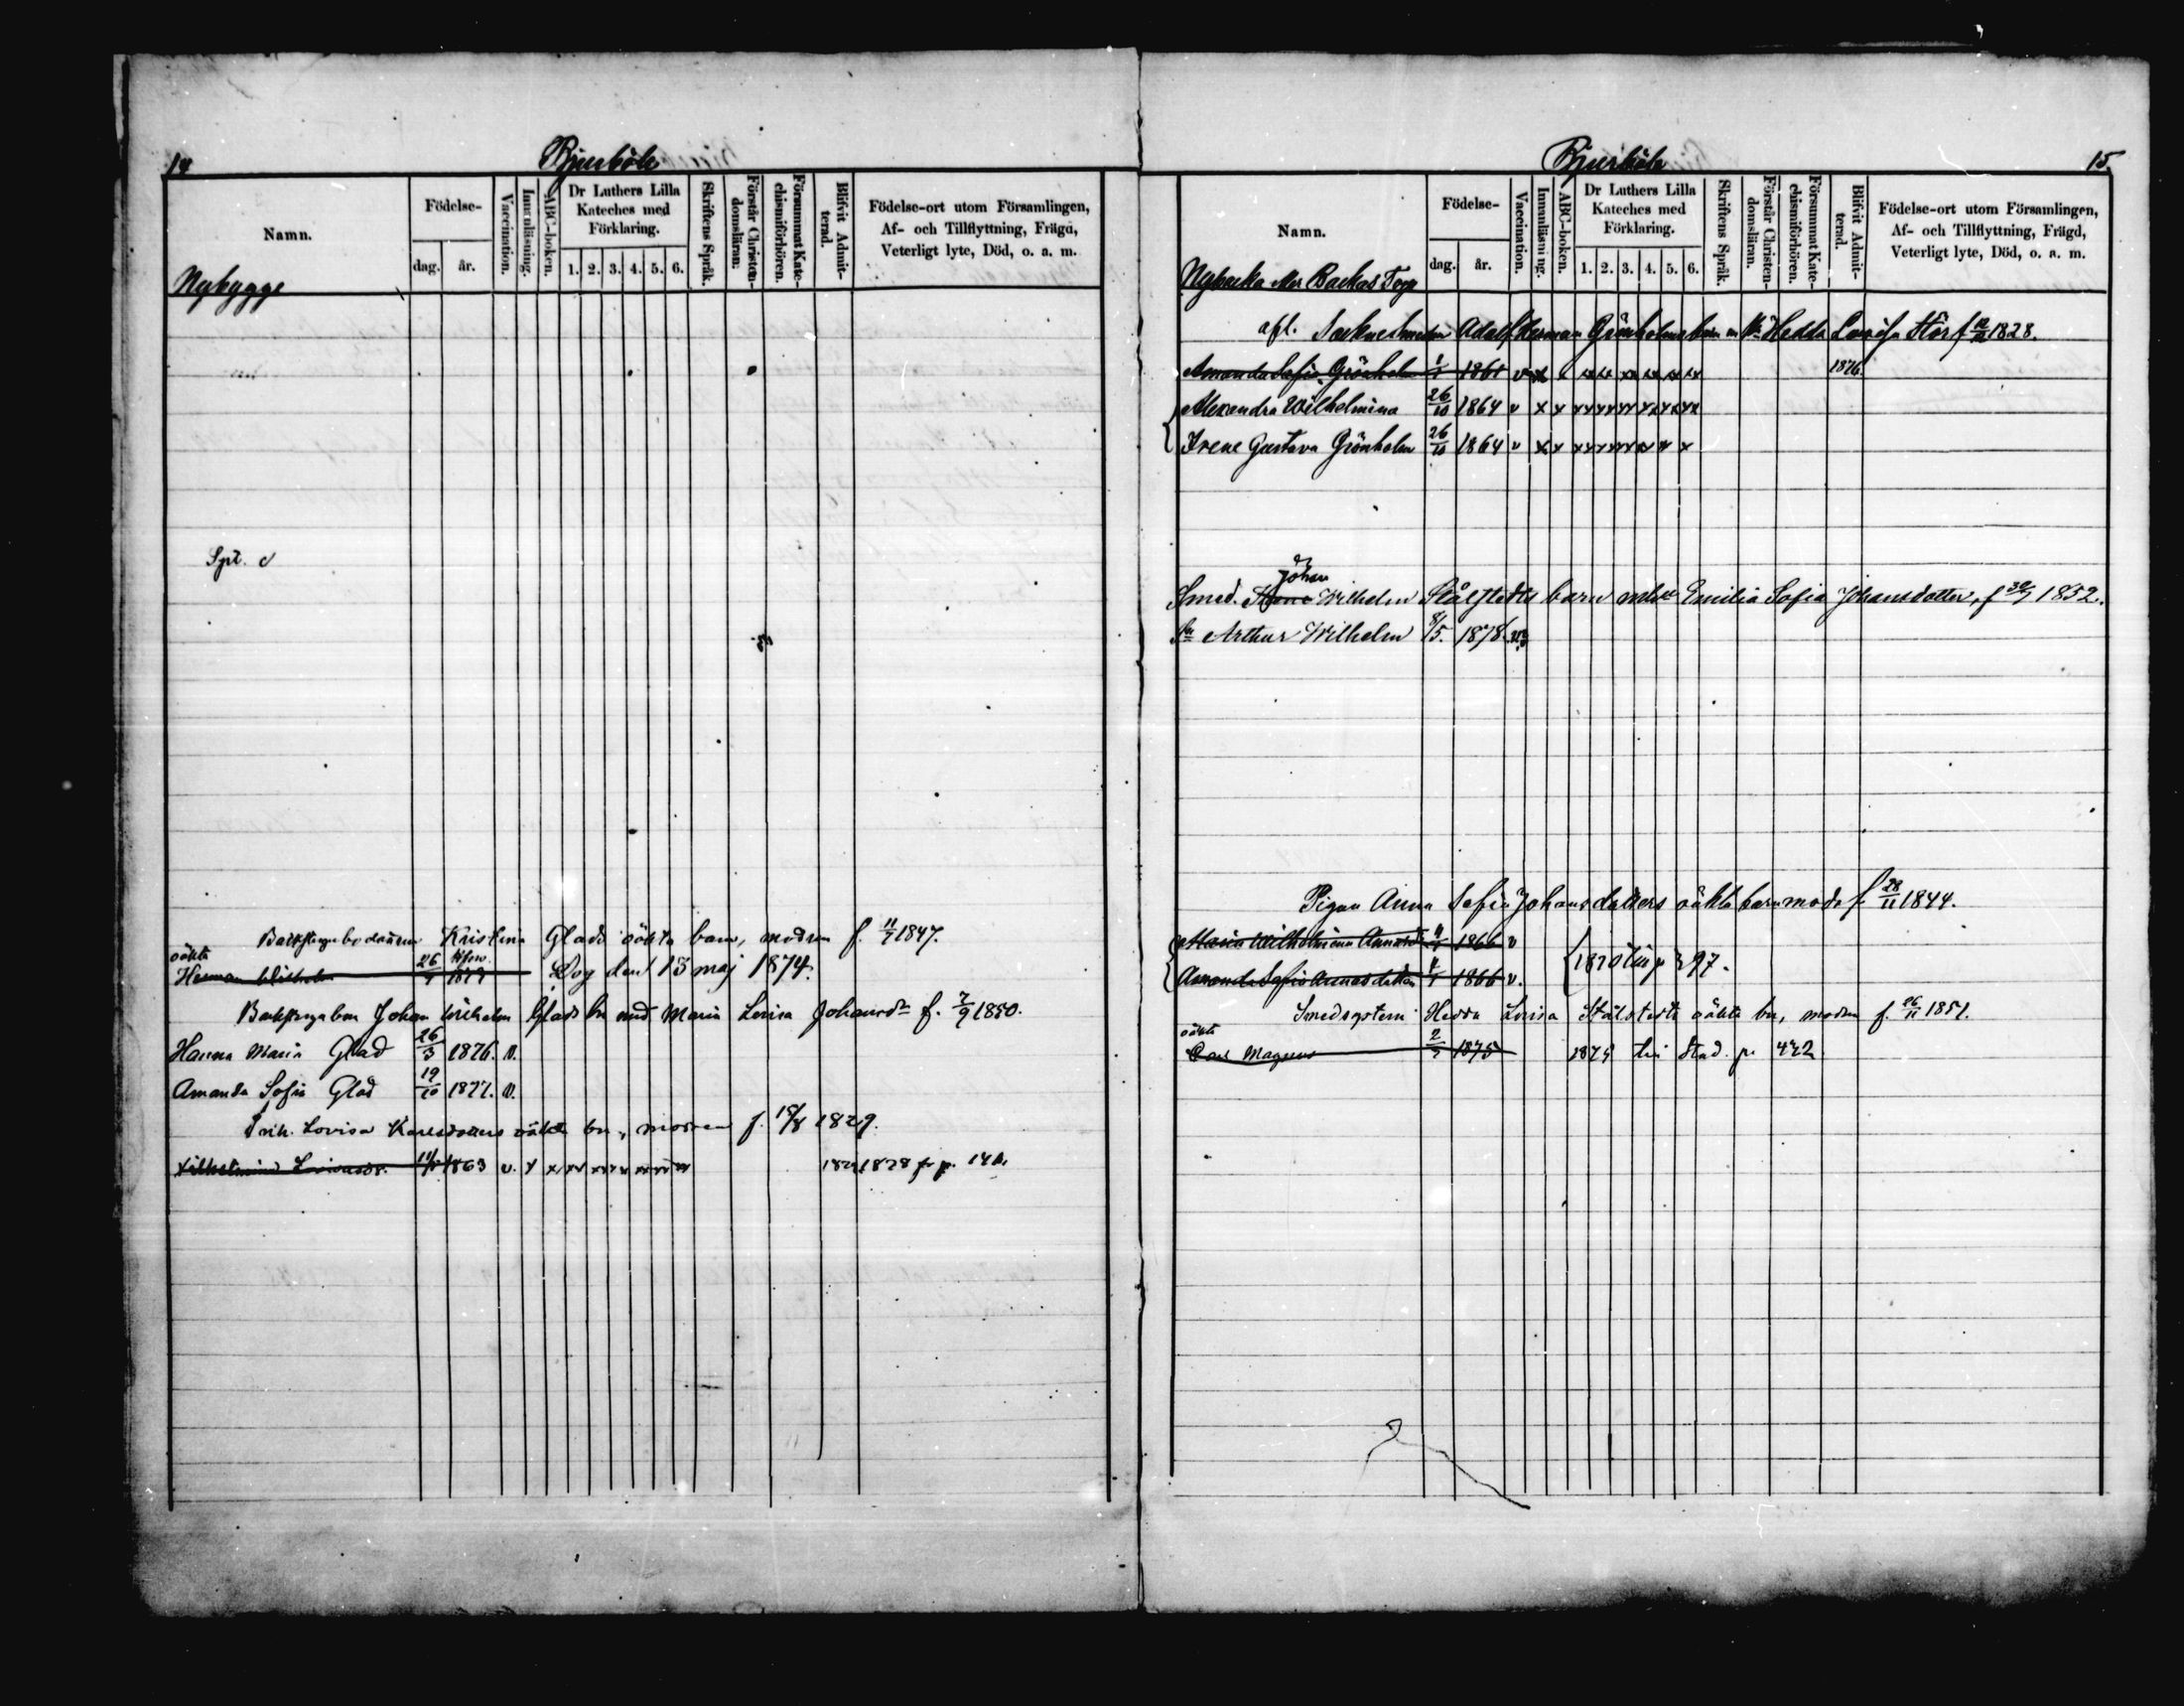 14
Bjurböle
Namn.
Födelse-
dag. år.
Vaccination.
Innanläsning.
ABC-boken.
Dr Luthers Lilla
Kateches med
Förklaring.
1. 2. 3. 4. 5. 6.
Skriftens Språk.
Förstår Christen-
domsläran.
Försummat Kate-
chismiförhören.
Blifvit Admit-
terad.
Födelse-ort utom Församlingen,
Af- och Tillflyttning, Frägd,
Veterligt lyte, Död, o. a. m.
Nybygge
Kristina Glads oäkta barn, modren f. 11/7 1847.
oäkta
Herman Wilhelm 26 1873 Dog den 13 maj 1874.
Johan Wilhelm Glads bn med Maria Lovisa Johansdr f. 7/9 1850.
Hanna Maria Glad 26/3 1876. v.
Amanda Sofia Glad 19/10 1877. v.
Lovisa Karlsdotters oäkta bn, modren f. 18/8 1829.
Wilhelmina Lovisadr. 1863 v. x x xx xx x xx xx xx 1878 p. 141.
15
Bjurböle
Namn.
Födelse-
dag. år.
Vaccination.
Innanläsning.
ABC-boken.
Dr Luthers Lilla
Kateches med
Förklaring.
1. 2. 3. 4. 5. 6.
Skriftens Språk.
Förstår Christen-
domsläran.
Försummat Kate-
chismiförhören.
Blifvit Admit-
terad.
Födelse-ort utom Församlingen,
Af- och Tillflyttning, Frägd,
Veterligt lyte, Död, o. a. m.
Nybacka eller Backas Torp
afl. Adolf Herman Grönholms barn m Hedda Lovisa Stör f 1828.
Amanda Sofia Grönholm 1861 v x x xx xx xx xx xx 1876.
Alexandra Wilhelmina 26/10 1864 v x x xx xx xx xx xx xx
Irene Gustava Grönholm 26/10 1864 v x x xx xx xx xx x x
Johan
Smed. Wilhelm Stålstedts barn m Emilia Sofia Johansdotter, f 30/7 1852.
Arthur Wilhelm 8/5. 1878 v.
Pigan Anna Sofia Johansdotters oäkta barn modr f 28/11 1844.
Maria Wilhelmina Annasdr 1866 v
Amanda Sofia Annasdotter 1866 v. 1870 till p 397.
Hedda Lovisa Stålstedts oäkta bn, modren f. 26/11 1851.
oäkta
Carl Magnus 2 1875 1875 till Stad. p. 472